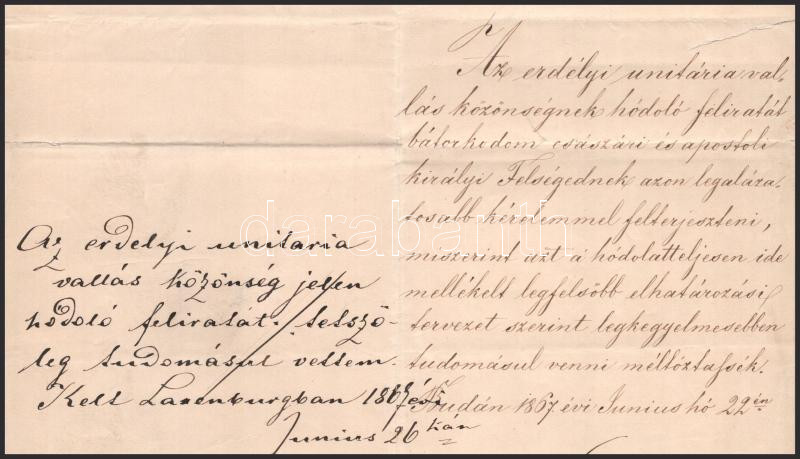 Az erdélyi unitária val-
lás közönségnek hódoló feliratát
bátorkodom császári és apostoli
királyi Felségednek azon legaláza-
tosabb kérelemmel felterjeszteni,
miszerint azt a hódolatteljesen ide
mellékelt legfelsőbb elhatározási
tervezet szerint legkegyelmesebben
tudomásul venni méltóztassék.
Budán 1867 évi Junius hó 22én
Az erdelyi unitaria
vallás közönség jelen
hódoló feliratát tetsző-
leg tudomásul vettem.
Kelt Laxenburgban 1867 évi
Junius 26kán
darabanth